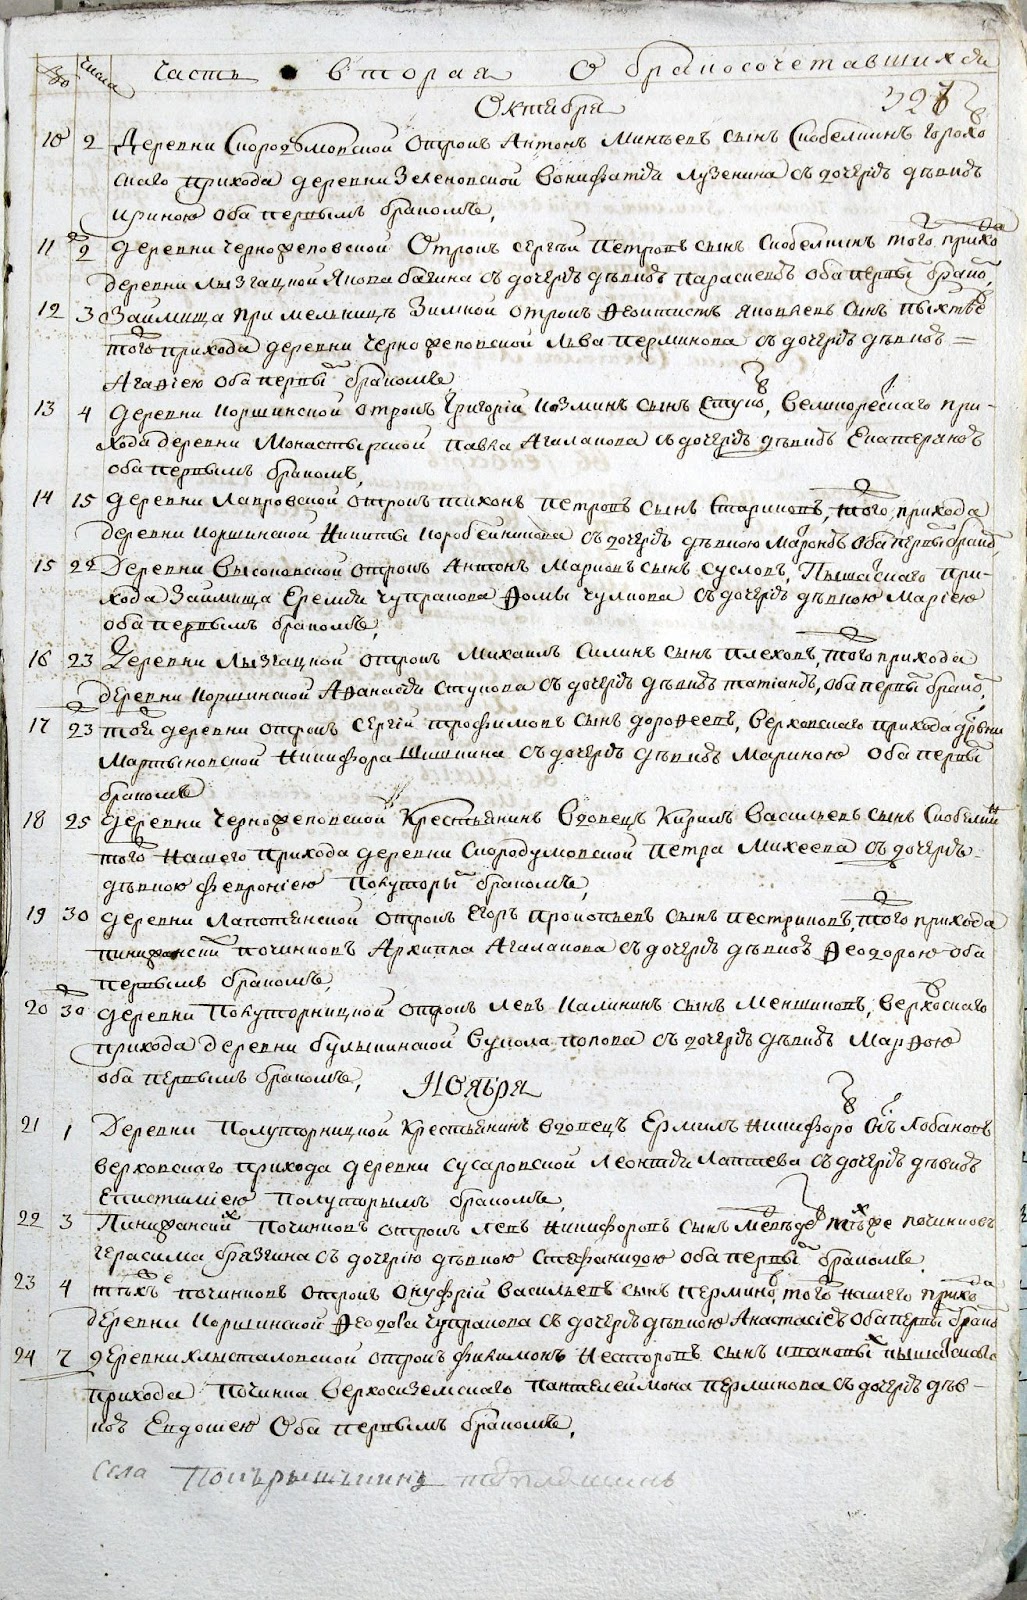 № Числа Часть вторая О бракосочетавшихся
Октября 327
10 2 Деревни Скородумовской отрокъ Антонъ Минѣевъ сынъ Скобелкинъ Горохо
скаго прихода деревни Зеленовской Вонифатия Лузенина съ дочерью дѣвкою
Ириною оба первымъ бракомъ,
11 2 деревни чернořеповской Отрокъ Сергѣй Петровъ сынъ Скобелкинъ того прихода
деревни Лызгацкой Якова бячина съ дочерью дѣвкою Параскевою оба первы брако,
12 3 Займища при мельницѣ Зимной отрокъ Ѳеоктистъ Яковлевъ сынъ Пыхтѣе
того прихода деревни чернореповской Льва Перминова съ дочерью дѣвкою
Агафiею оба первы бракомъ
13 4 деревни Коршинской отрокъ Григорiй Козминъ сынъ Ступо, Великорѣскаго при-
хода деревни Монастырской Павла Агалакова съ дочерью дѣвкою Екатериною
оба первымъ бракомъ,
14 15 деревни Лавровской отрокъ тихонъ Петровъ сынъ Стариковъ, того прихода
деревни Коршинской Никиты Коробейникова съ дочерью дѣвкою Марфою оба первы брако,
15 22 Деревни Высоковской отрокъ Антонъ Марковъ сынъ Сусловъ, Пышакскаго при-
хода Займища Еремея Чупракова Фомы Чулкова съ дочерью дѣвкою Марiею
оба первымъ бракомъ,
16 23 Деревни Лызгацкой отрокъ Михаилъ Силинъ сынъ Плеховъ, того прихода
деревни Коршинской Афанасея Ступова съ дочерью дѣвкою татiаною, оба первы брако,
17 23 той деревни отрокъ Сергiй трофимовъ сынъ дорофеевъ, верховскаго прихода древни
Мартыновской Никифора Шишкина съ дочерью дѣвкою Мариною оба первы
бракомъ
18 25 деревни чернореповской Крестьянинъ вдовецъ Кирилъ Васильевъ сынъ Скобелкинъ
того нашего прихода деревни Скородумовской Петра Михеева съ дочерью
дѣвкою февронiею Полуторы бракомъ,
19 30 деревни Лапотянской отрокъ Егоръ Прокопьевъ сынъ Пестриковъ, того прихода
починковъ Архиппа Агалакова съ дочерью дѣвкою Ѳеодорою оба
первымъ бракомъ,
20 30 деревни Полуторницкой отрокъ Левъ Калининъ сынъ Меншиковъ, верховскаго
прихода деревни булычинской Вукола попова съ дочерью дѣвкою Марфою
оба первымъ бракомъ, Ноября
21 1 Деревни Полуторницкой Крестьянинъ вдовецъ Ермилъ Никифоро снъ Лобановъ
верховскаго прихода деревни Сусаровской Леонтия Лаптева съ дочерью дѣвкою
Епистимiею Полуторымъ бракомъ,
22 3 починковъ отрокъ Левъ Никифоровъ сынъ Медвѣде тѣхъ же починковъ
герасима бразгина съ дочерiю дѣвкою Стефанидою оба первы бракомъ,
23 4 тѣхъ же починковъ отрокъ Онуфрiй Васильевъ сынъ Пермино, того нашего прихода
деревни Коршинской Ѳеодора чупракова съ дочерью дѣвкою Анастасiею оба первы брако
24 7 деревни хлысталовской отрокъ филимонъ Несторовъ сынъ Пышакскаго
прихода Починка верхосиземскаго Пантелеймона Перминова съ дочерью дѣв-
кою Евдокею Оба первымъ бракомъ,
Села